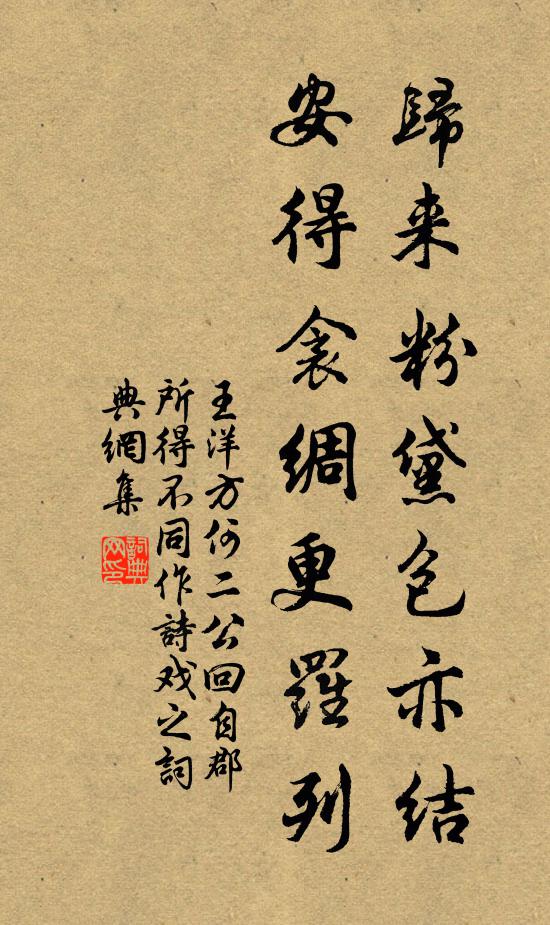 歸来粉黛色亦结
安得衾綢更羅列
王洋方何二公回自郡
所得不同作詩戏之詞
典網集
詞典
网印